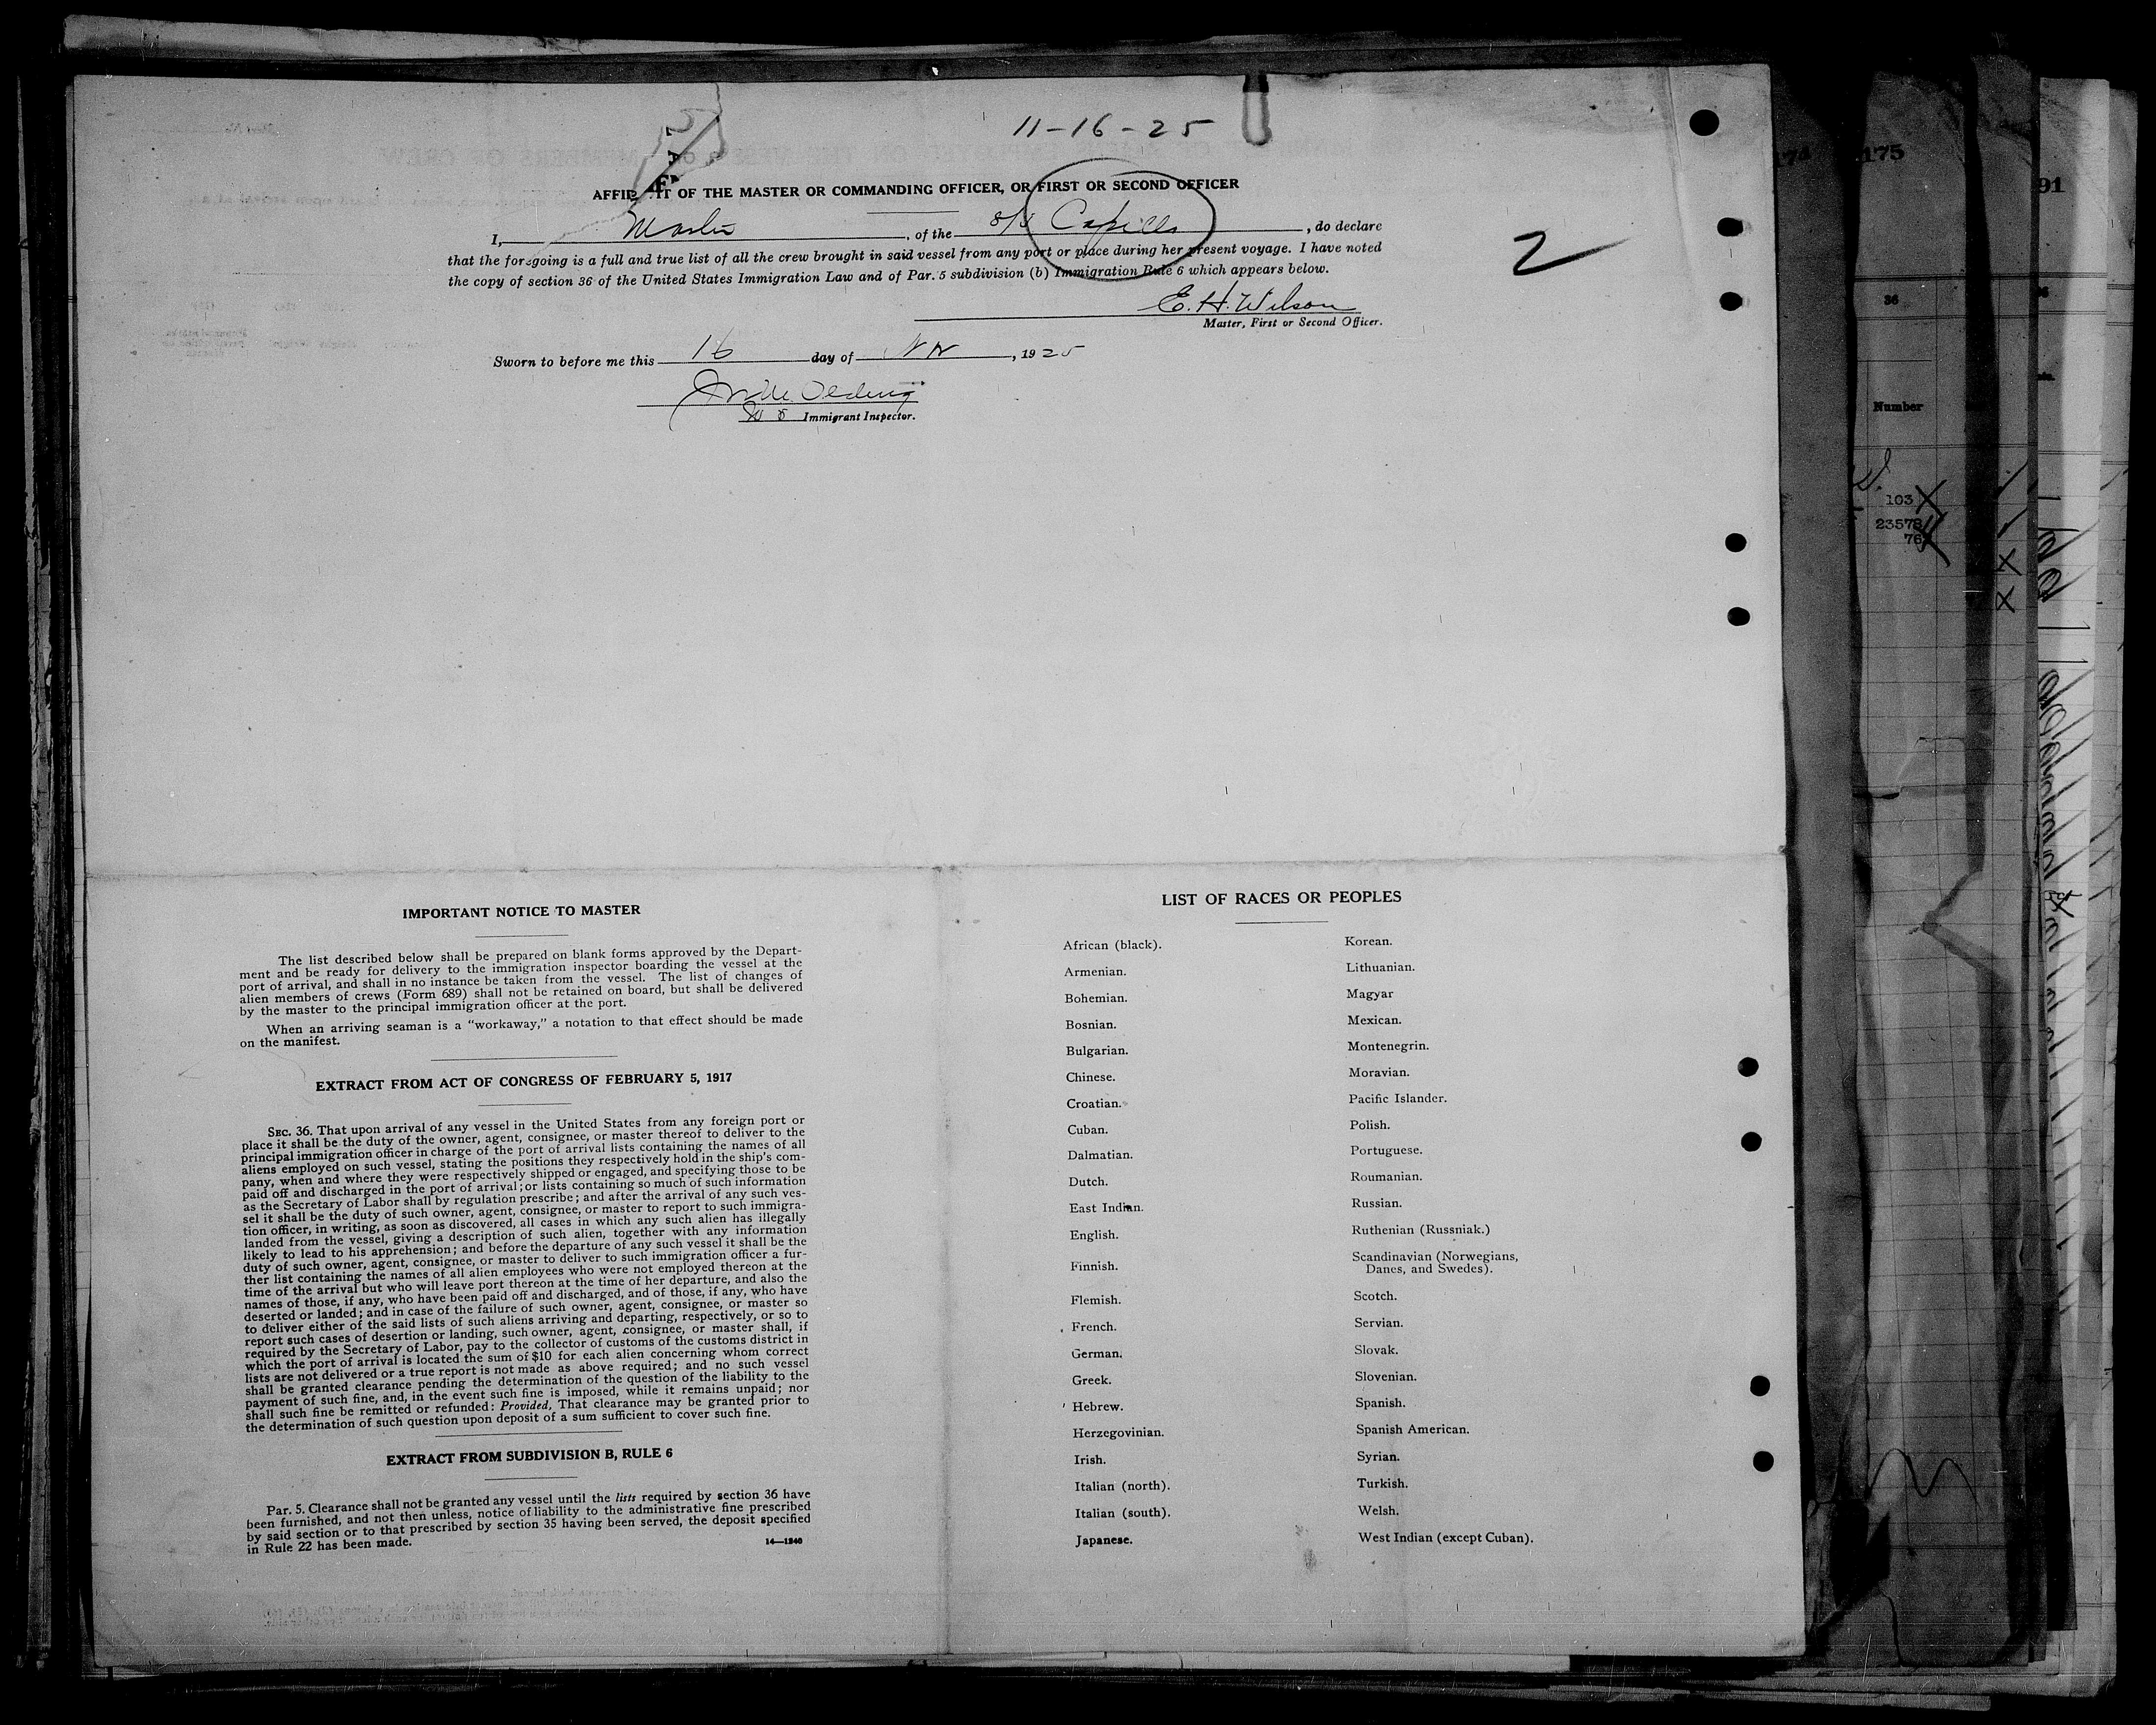 11-16-25
AFFID IT OF THE MASTER OR COMMANDING OFFICER, OR FIRST OR SECOND OFFICER
I, Master, of the S/S Capillo, do declare
that the foregoing is a full and true list of all the crew brought in said vessel from any port or place during her present voyage. I have noted
the copy of section 36 of the United States Immigration Law and of Par. 5 subdivision (b) Immigration Rule 6 which appears below.
2
E. H. Wilson
Master, First or Second Officer.
Sworn to before me this 16 day of Nov, 1925
Immigrant Inspector.
IMPORTANT NOTICE TO MASTER
The list described below shall be prepared on blank forms approved by the Depart-
ment and be ready for delivery to the immigration inspector boarding the vessel at the
port of arrival, and shall in no instance be taken from the vessel. The list of changes of
alien members of crews (Form 689) shall not be retained on board, but shall be delivered
by the master to the principal immigration officer at the port.
When an arriving seaman is a "workaway," a notation to that effect should be made
on the manifest.
EXTRACT FROM ACT OF CONGRESS OF FEBRUARY 5, 1917
SEC. 36. That upon arrival of any vessel in the United States from any foreign port or
place it shall be the duty of the owner, agent, consignee, or master thereof to deliver to the
principal immigration officer in charge of the port of arrival lists containing the names of all
aliens employed on such vessel, stating the positions they respectively hold in the ship's com-
pany, when and where they were respectively shipped or engaged, and specifying those to be
paid off and discharged in the port of arrival; or lists containing so much of such information
as the Secretary of Labor shall by regulation prescribe; and after the arrival of any such ves-
sel it shall be the duty of such owner, agent, consignee, or master to report to such immigra-
tion officer, in writing, as soon as discovered, all cases in which any such alien has illegally
landed from the vessel, giving a description of such alien, together with any information
likely to lead to his apprehension; and before the departure of any such vessel it shall be the
duty of such owner, agent, consignee, or master to deliver to such immigration officer a fur-
ther list containing the names of all alien employees who were not employed thereon at the
time of the arrival but who will leave port thereon at the time of her departure, and also the
names of those, if any, who have been paid off and discharged, and of those, if any, who have
deserted or landed; and in case of the failure of such owner, agent, consignee, or master so
to deliver either of the said lists of such aliens arriving and departing, respectively, or so to
report such cases of desertion or landing, such owner, agent, consignee, or master shall, if
required by the Secretary of Labor, pay to the collector of customs of the customs district in
which the port of arrival is located the sum of $10 for each alien concerning whom correct
lists are not delivered or a true report is not made as above required; and no such vessel
shall be granted clearance pending the determination of the question of the liability to the
payment of such fine, and, in the event such fine is imposed, while it remains unpaid; nor
shall such fine be remitted or refunded: Provided, That clearance may be granted prior to
the determination of such question upon deposit of a sum sufficient to cover such fine.
EXTRACT FROM SUBDIVISION B, RULE 6
Par. 5. Clearance shall not be granted any vessel until the lists required by section 36 have
been furnished, and not then unless, notice of liability to the administrative fine prescribed
by said section or to that prescribed by section 35 having been served, the deposit specified
in Rule 22 has been made.
14—1240
LIST OF RACES OR PEOPLES
African (black).
Armenian.
Bohemian.
Bosnian.
Bulgarian.
Chinese.
Croatian.
Cuban.
Dalmatian.
Dutch.
East Indian.
English.
Finnish.
Flemish.
French.
German.
Greek.
Hebrew.
Herzegovinian.
Irish.
Italian (north).
Italian (south).
Japanese.
Korean.
Lithuanian.
Magyar
Mexican.
Montenegrin.
Moravian.
Pacific Islander.
Polish.
Portuguese.
Roumanian.
Russian.
Ruthenian (Russniak.)
Scandinavian (Norwegians,
Danes, and Swedes).
Scotch.
Servian.
Slovak.
Slovenian.
Spanish.
Spanish American.
Syrian.
Turkish.
Welsh.
West Indian (except Cuban).
174
175
91
36
Number
103
23578
76